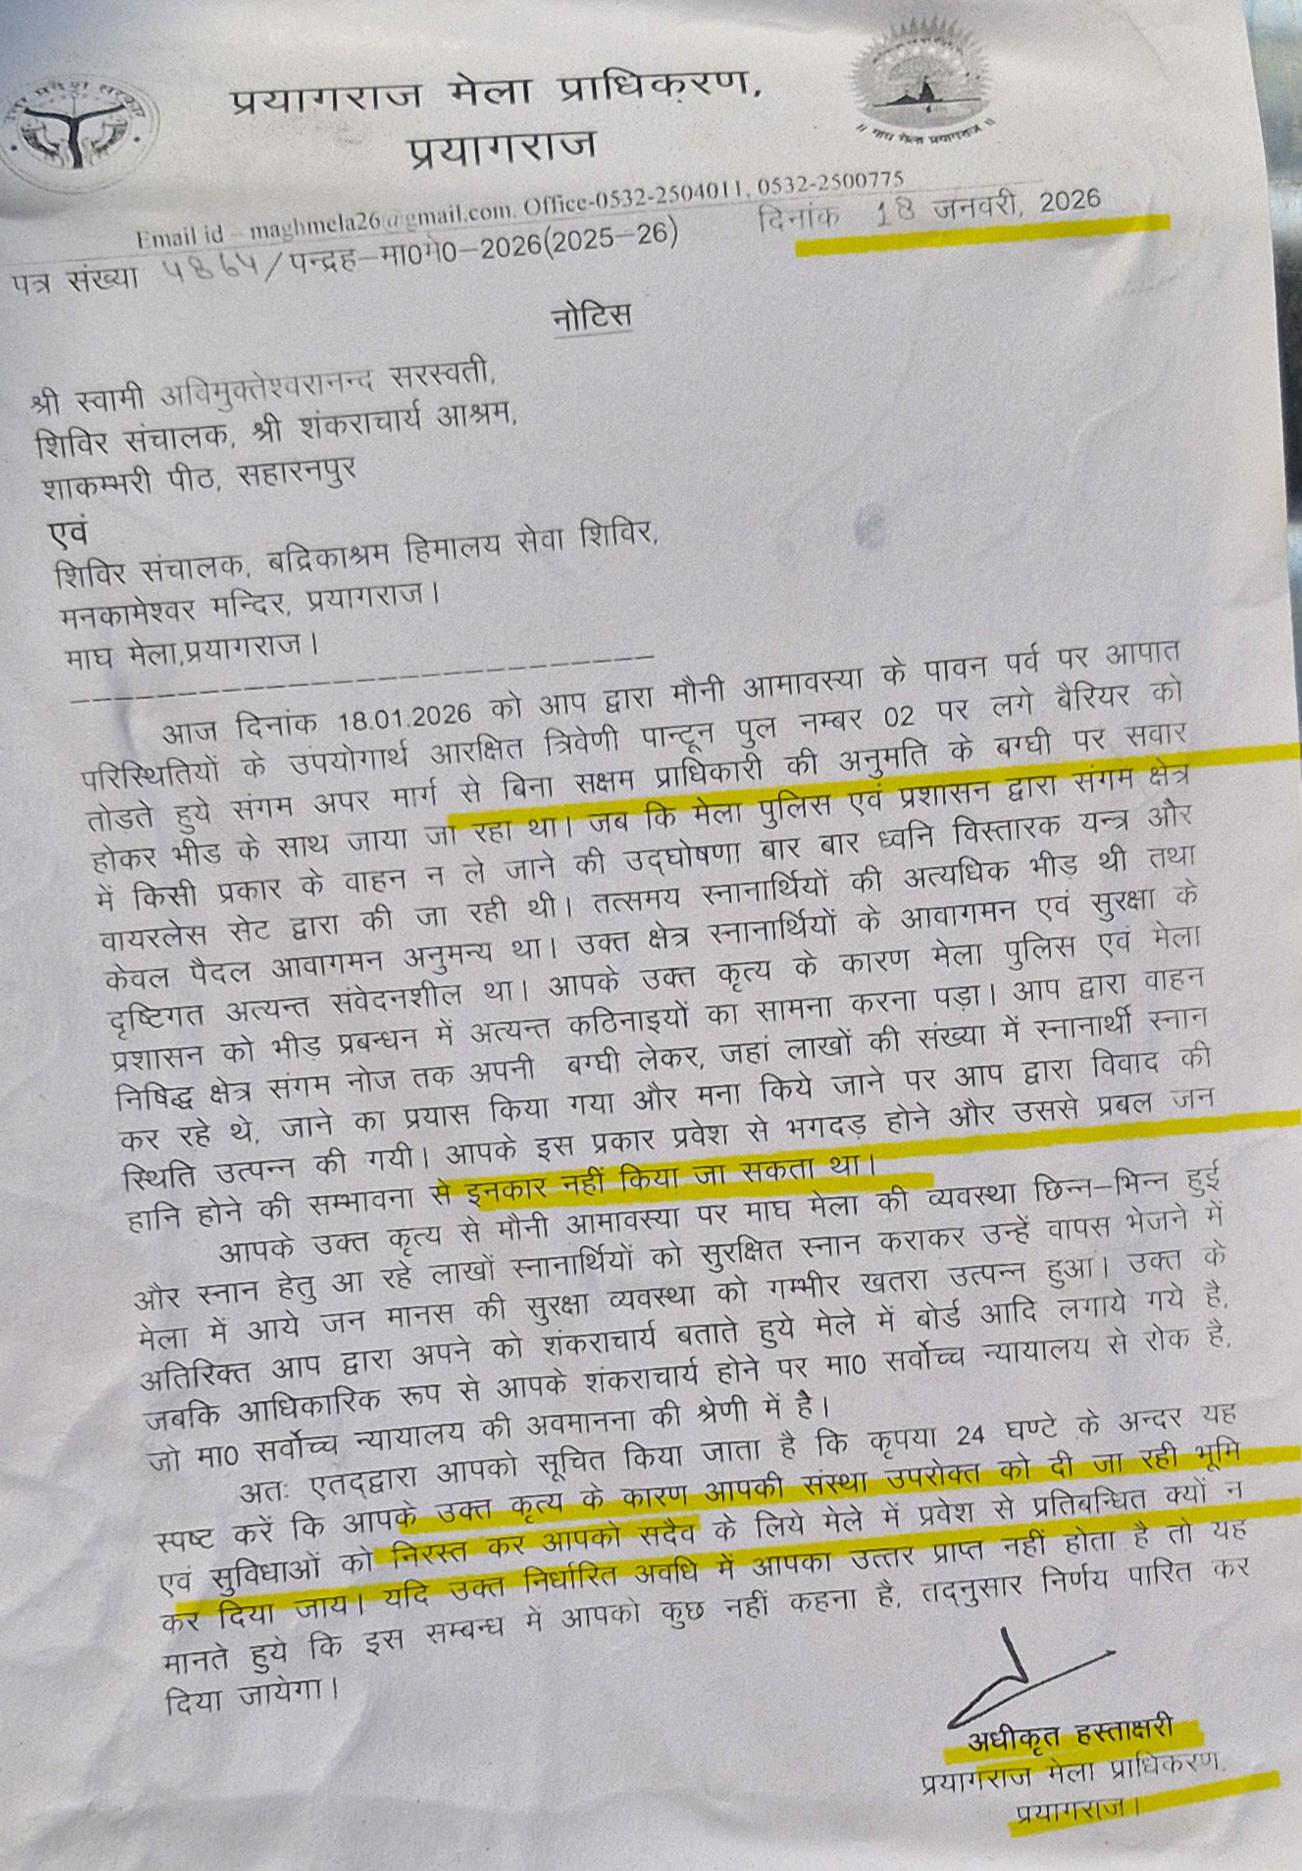 प्रयागराज मेला प्राधिकरण,
प्रयागराज
॥ माघ मेला प्रयागराज ॥
Email id – maghmela26@gmail.com, Office-0532-2504011, 0532-2500775
पत्र संख्या 4864/पन्द्रह–मा0मे0–2026(2025–26)
दिनांक 18 जनवरी, 2026
नोटिस
श्री स्वामी अविमुक्तेश्वरानन्द सरस्वती,
शिविर संचालक, श्री शंकराचार्य आश्रम,
शाकम्भरी पीठ, सहारनपुर
एवं
शिविर संचालक, बद्रिकाश्रम हिमालय सेवा शिविर,
मनकामेश्वर मन्दिर, प्रयागराज।
माघ मेला,प्रयागराज।
आज दिनांक 18.01.2026 को आप द्वारा मौनी आमावस्या के पावन पर्व पर आपात
परिस्थितियों के उपयोगार्थ आरक्षित त्रिवेणी पान्टून पुल नम्बर 02 पर लगे बैरियर को
तोडते हुये संगम अपर मार्ग से बिना सक्षम प्राधिकारी की अनुमति के बग्घी पर सवार
होकर भीड के साथ जाया जा रहा था। जब कि मेला पुलिस एवं प्रशासन द्वारा संगम क्षेत्र
में किसी प्रकार के वाहन न ले जाने की उद्घोषणा बार बार ध्वनि विस्तारक यन्त्र और
वायरलेस सेट द्वारा की जा रही थी। तत्समय स्नानार्थियों की अत्यधिक भीड़ थी तथा
केवल पैदल आवागमन अनुमन्य था। उक्त क्षेत्र स्नानार्थियों के आवागमन एवं सुरक्षा के
दृष्टिगत अत्यन्त संवेदनशील था। आपके उक्त कृत्य के कारण मेला पुलिस एवं मेला
प्रशासन को भीड़ प्रबन्धन में अत्यन्त कठिनाइयों का सामना करना पड़ा। आप द्वारा वाहन
निषिद्ध क्षेत्र संगम नोज तक अपनी बग्घी लेकर, जहां लाखों की संख्या में स्नानार्थी स्नान
कर रहे थे, जाने का प्रयास किया गया और मना किये जाने पर आप द्वारा विवाद की
स्थिति उत्पन्न की गयी। आपके इस प्रकार प्रवेश से भगदड़ होने और उससे प्रबल जन
हानि होने की सम्भावना से इनकार नहीं किया जा सकता था।
आपके उक्त कृत्य से मौनी आमावस्या पर माघ मेला की व्यवस्था छिन्न–भिन्न हुई
और स्नान हेतु आ रहे लाखों स्नानार्थियों को सुरक्षित स्नान कराकर उन्हें वापस भेजने में
मेला में आये जन मानस की सुरक्षा व्यवस्था को गम्भीर खतरा उत्पन्न हुआ। उक्त के
अतिरिक्त आप द्वारा अपने को शंकराचार्य बताते हुये मेले में बोर्ड आदि लगाये गये है,
जबकि आधिकारिक रूप से आपके शंकराचार्य होने पर मा0 सर्वोच्च न्यायालय से रोक है,
जो मा0 सर्वोच्च न्यायालय की अवमानना की श्रेणी में है।
अतः एतद्द्वारा आपको सूचित किया जाता है कि कृपया 24 घण्टे के अन्दर यह
स्पष्ट करें कि आपके उक्त कृत्य के कारण आपकी संस्था उपरोक्त को दी जा रही भूमि
एवं सुविधाओं को निरस्त कर आपको सदैव के लिये मेले में प्रवेश से प्रतिबन्धित क्यों न
कर दिया जाय। यदि उक्त निर्धारित अवधि में आपका उत्तर प्राप्त नहीं होता है तो यह
मानते हुये कि इस सम्बन्ध में आपको कुछ नहीं कहना है, तद्नुसार निर्णय पारित कर
दिया जायेगा।
अधीकृत हस्ताक्षरी
प्रयागराज मेला प्राधिकरण,
प्रयागराज।